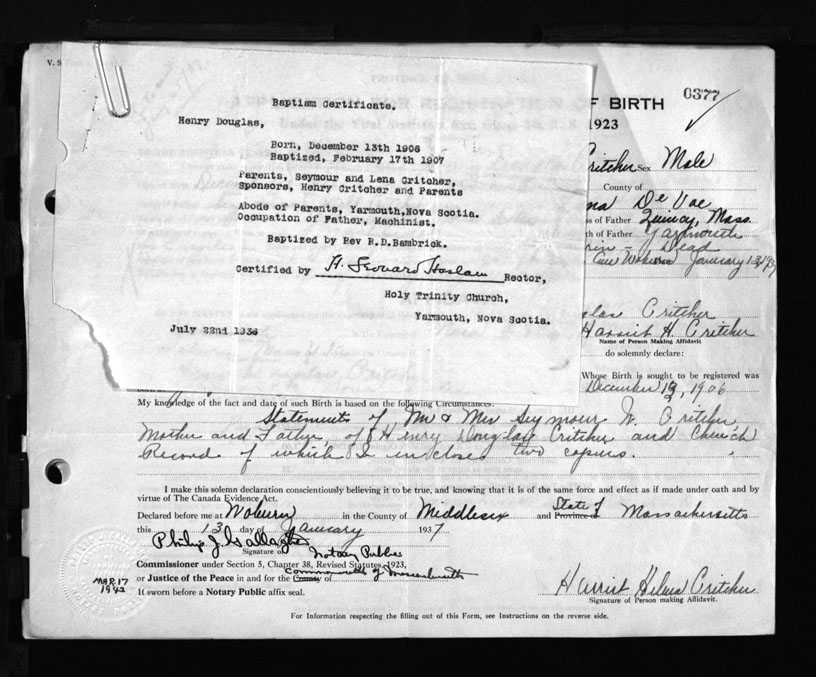 V. S.
Baptism Certificate.
Henry Douglas,
Born, December 13th 1906
Baptized, February 17th 1907
Parents, Seymour and Lena Critcher,
Sponsors, Henry Critcher and Parents
Abode of Parents, Yarmouth,Nova Scotia.
Occupation of Father, Machinist.
Baptized by Rev R.D.Bambrick.
Certified by H. Leonard Haslam Rector,
Holy Trinity Church,
Yarmouth, Nova Scotia.
July 22nd 1936
F BIRTH 0377
1923
Critcher Sex Male
County of
na De Vae
s of Father Quincy, Mass.
th of Father Yarmouth
Dead
January 13
las Critcher
Harriet H. Critcher
Name of Person Making Affidavit
do solemnly declare:
Whose Birth is sought to be registered was
December 13, 1906
My knowledge of the fact and date of such Birth is based on the following Circumstances:
Statements of Mr & Mrs Seymour W. Critcher
Mother and Father, of Henry Douglas Critcher and Church
Record of which I inclose two copies.
I make this solemn declaration conscientiously believing it to be true, and knowing that it is of the same force and effect as if made under oath and by
virtue of The Canada Evidence Act.
Declared before me at Woburn in the County of Middlesex and Province of State of Massachusetts
this 13 day of January 1937
Philip J. Gallagher
Signature of Notary Public
Commissioner under Section 5, Chapter 38, Revised Statutes, 1923,
or Justice of the Peace in and for the County of Commonwealth of Massachusetts
If sworn before a Notary Public affix seal.
MAR 17
1942
Harriet Helena Critcher
Signature of Person making Affidavit.
For Information respecting the filling out of this Form, see Instructions on the reverse side.